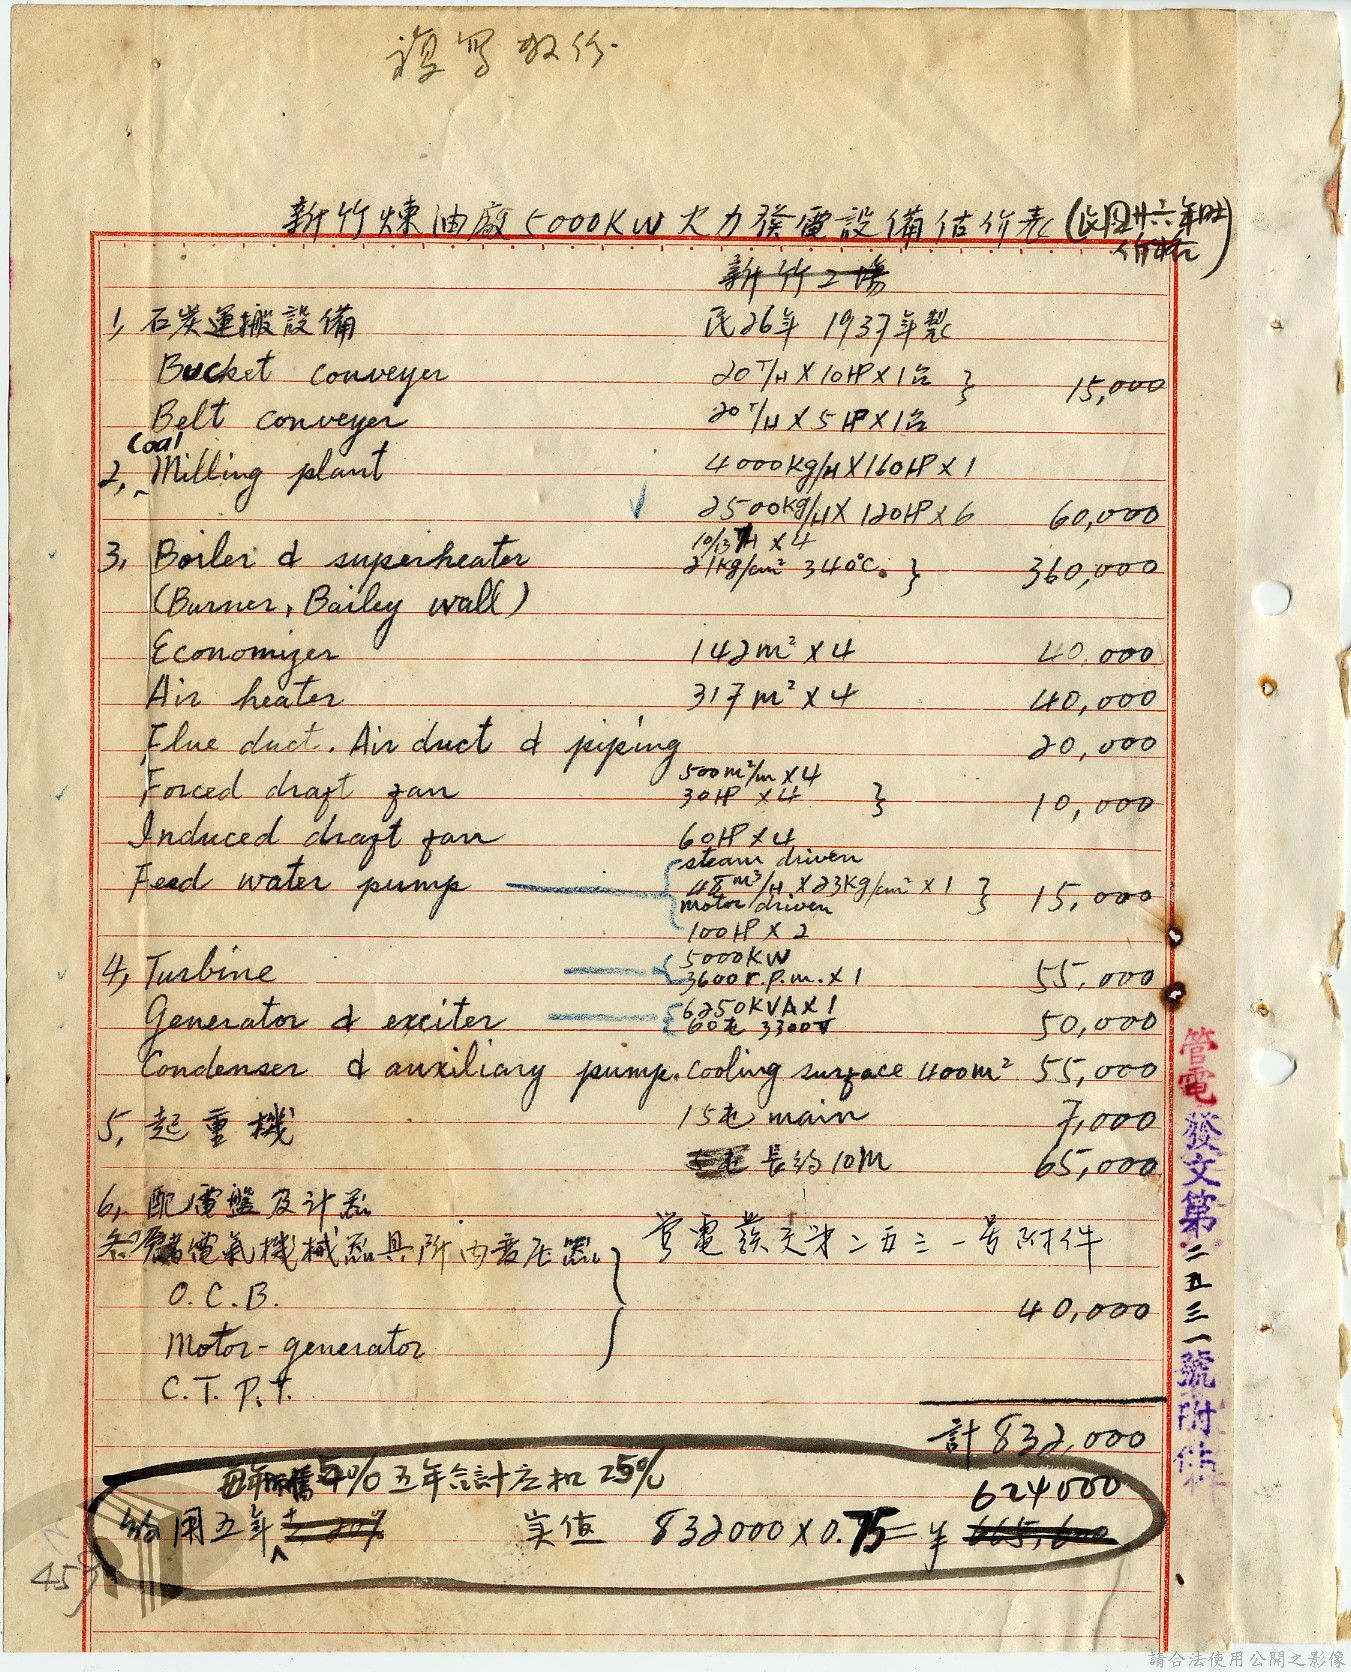 複写 수份
新竹煉油廠5000KW火力發電設備估价表(民国廿六年時价格)
新竹工場
1, 石炭運搬設備 民26年 1937年製
Bucket conveyer 20T/H×10HP×1台 } 15,000
Belt conveyer 20T/H×5HP×1台
2, Coal Milling plant 4000Kg/H×160HP×1
2500Kg/H×120HP×6 60,000
3, Boiler & superheater 10/13T/H ×4 21Kg/cm² 340°C. } 360,000
(Burner, Bailey wall)
Economizer 142m²×4 40,000
Air heater 317m²×4 40,000
Flue duct. Air duct & piping 20,000
Forced draft fan 500m²/m×4 30HP ×4 } 10,000
Induced draft fan 60HP×4
Feed water pump { steam driven 48m³/H×23Kg/cm²×1 } 15,000
motor driven
100HP×2
4, Turbine { 5000KW 3600r.p.m.×1 55,000
Generator & exciter { 6250KVA×1 60~ 3300V 50,000
Condenser & auxiliary pump. cooling surface 400m² 55,000
5, 起重機 15t main 7,000
長約10M 65,000
6, 配電盤及計器
電氣機械器具所内変圧器 } 營電發文第二五三一号附件
O.C.B. 40,000
Motor-generator
C.T. P.T.
計832,000
每年折舊5%五年合計应扣25% 624000
用五年 20% 実值 832000×0.75=¥ 665,600
管電發文第二五三一號附件
459
請合法使用公開之影像